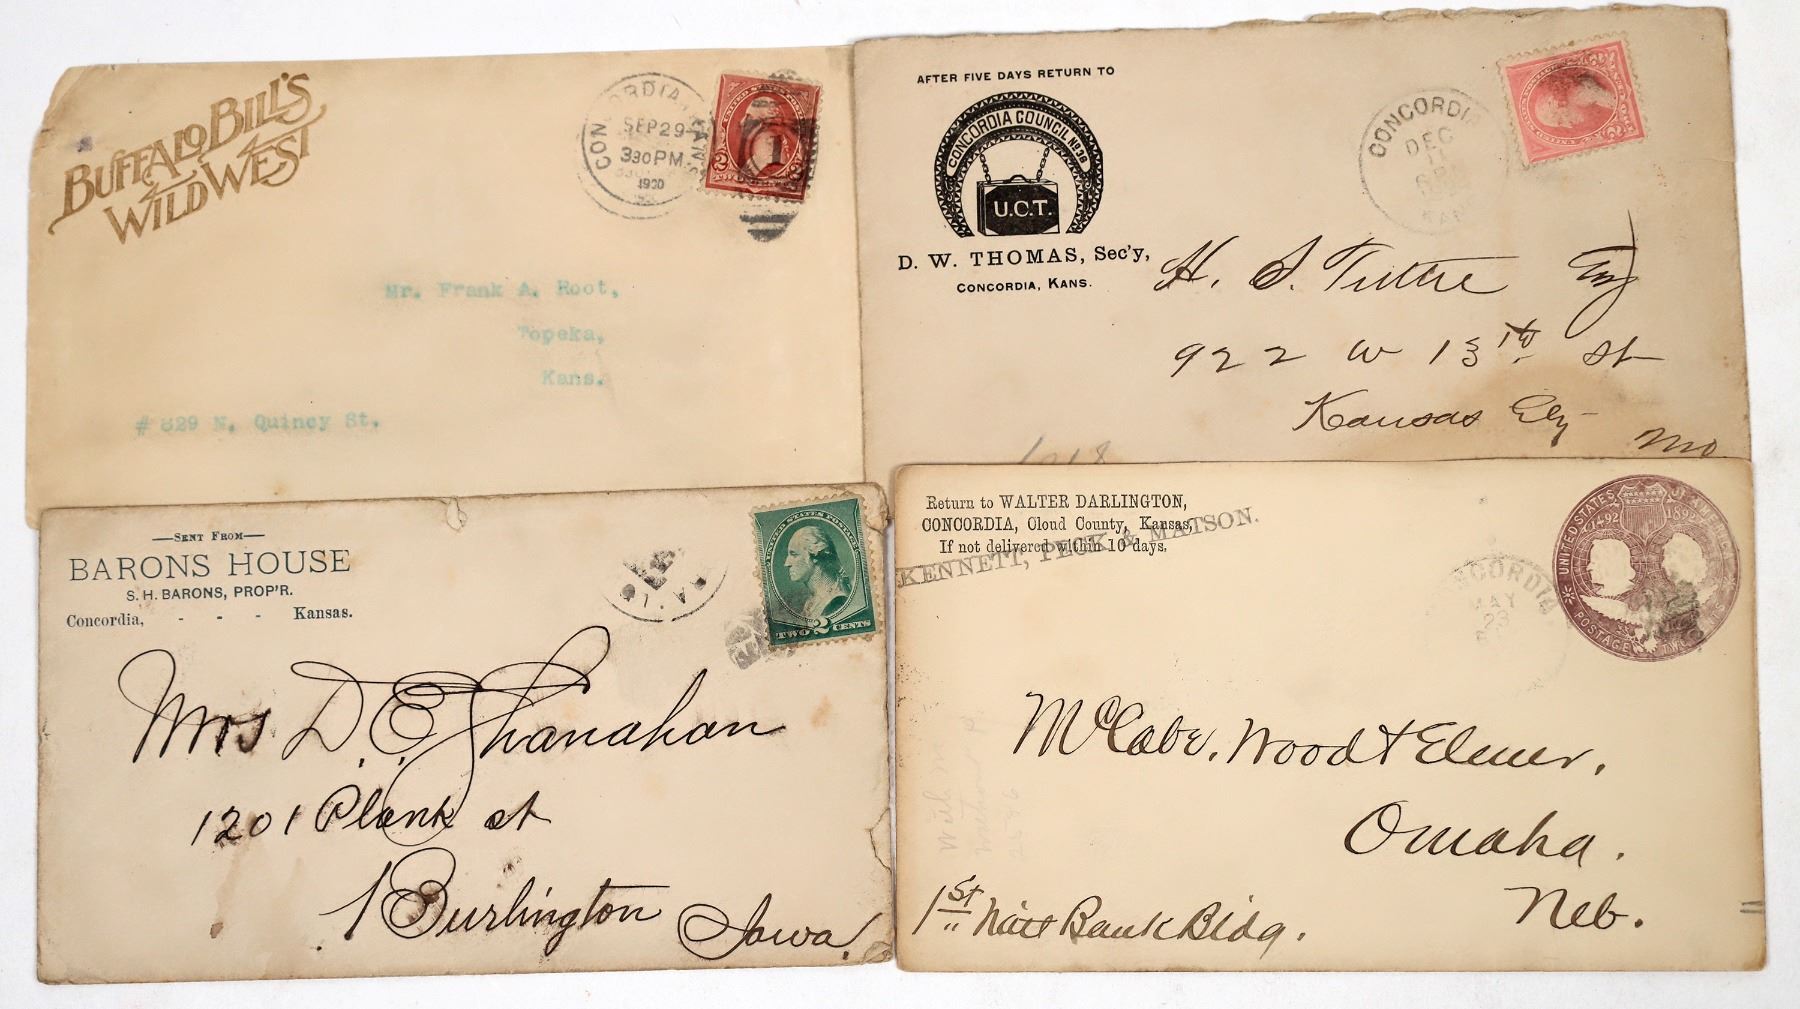 BUFFALO BILL'S
WILD WEST
CONCORDIA, KANS.
SEP 29
330 PM
1900
2 2
Mr. Frank A. Root,
Topeka,
Kans.
# 829 N. Quincy St.
AFTER FIVE DAYS RETURN TO
CONCORDIA COUNCIL No 36
U.C.T.
D. W. THOMAS, Sec'y,
CONCORDIA, KANS.
CONCORDIA
DEC
11
KAN
H. S. Tuttle Esq
922 W 13th St
Kansas City
Mo
SENT FROM
BARONS HOUSE
S. H. BARONS, PROP'R.
Concordia, - - - Kansas.
UNITED STATES POSTAGE
TWO 2 CENTS
Mrs D. E. Shanahan
1201 Plank st
Burlington
Iowa
Return to WALTER DARLINGTON,
CONCORDIA, Cloud County, Kansas,
If not delivered within 10 days.
KENNETT, PECK & MATSON.
UNITED STATES OF AMERICA
1492 1892
POSTAGE TWO CENTS
CONCORDIA
MAY
23
McCabe, Wood & Elmer,
Omaha.
Neb.
1st Natl Bank Bldg.